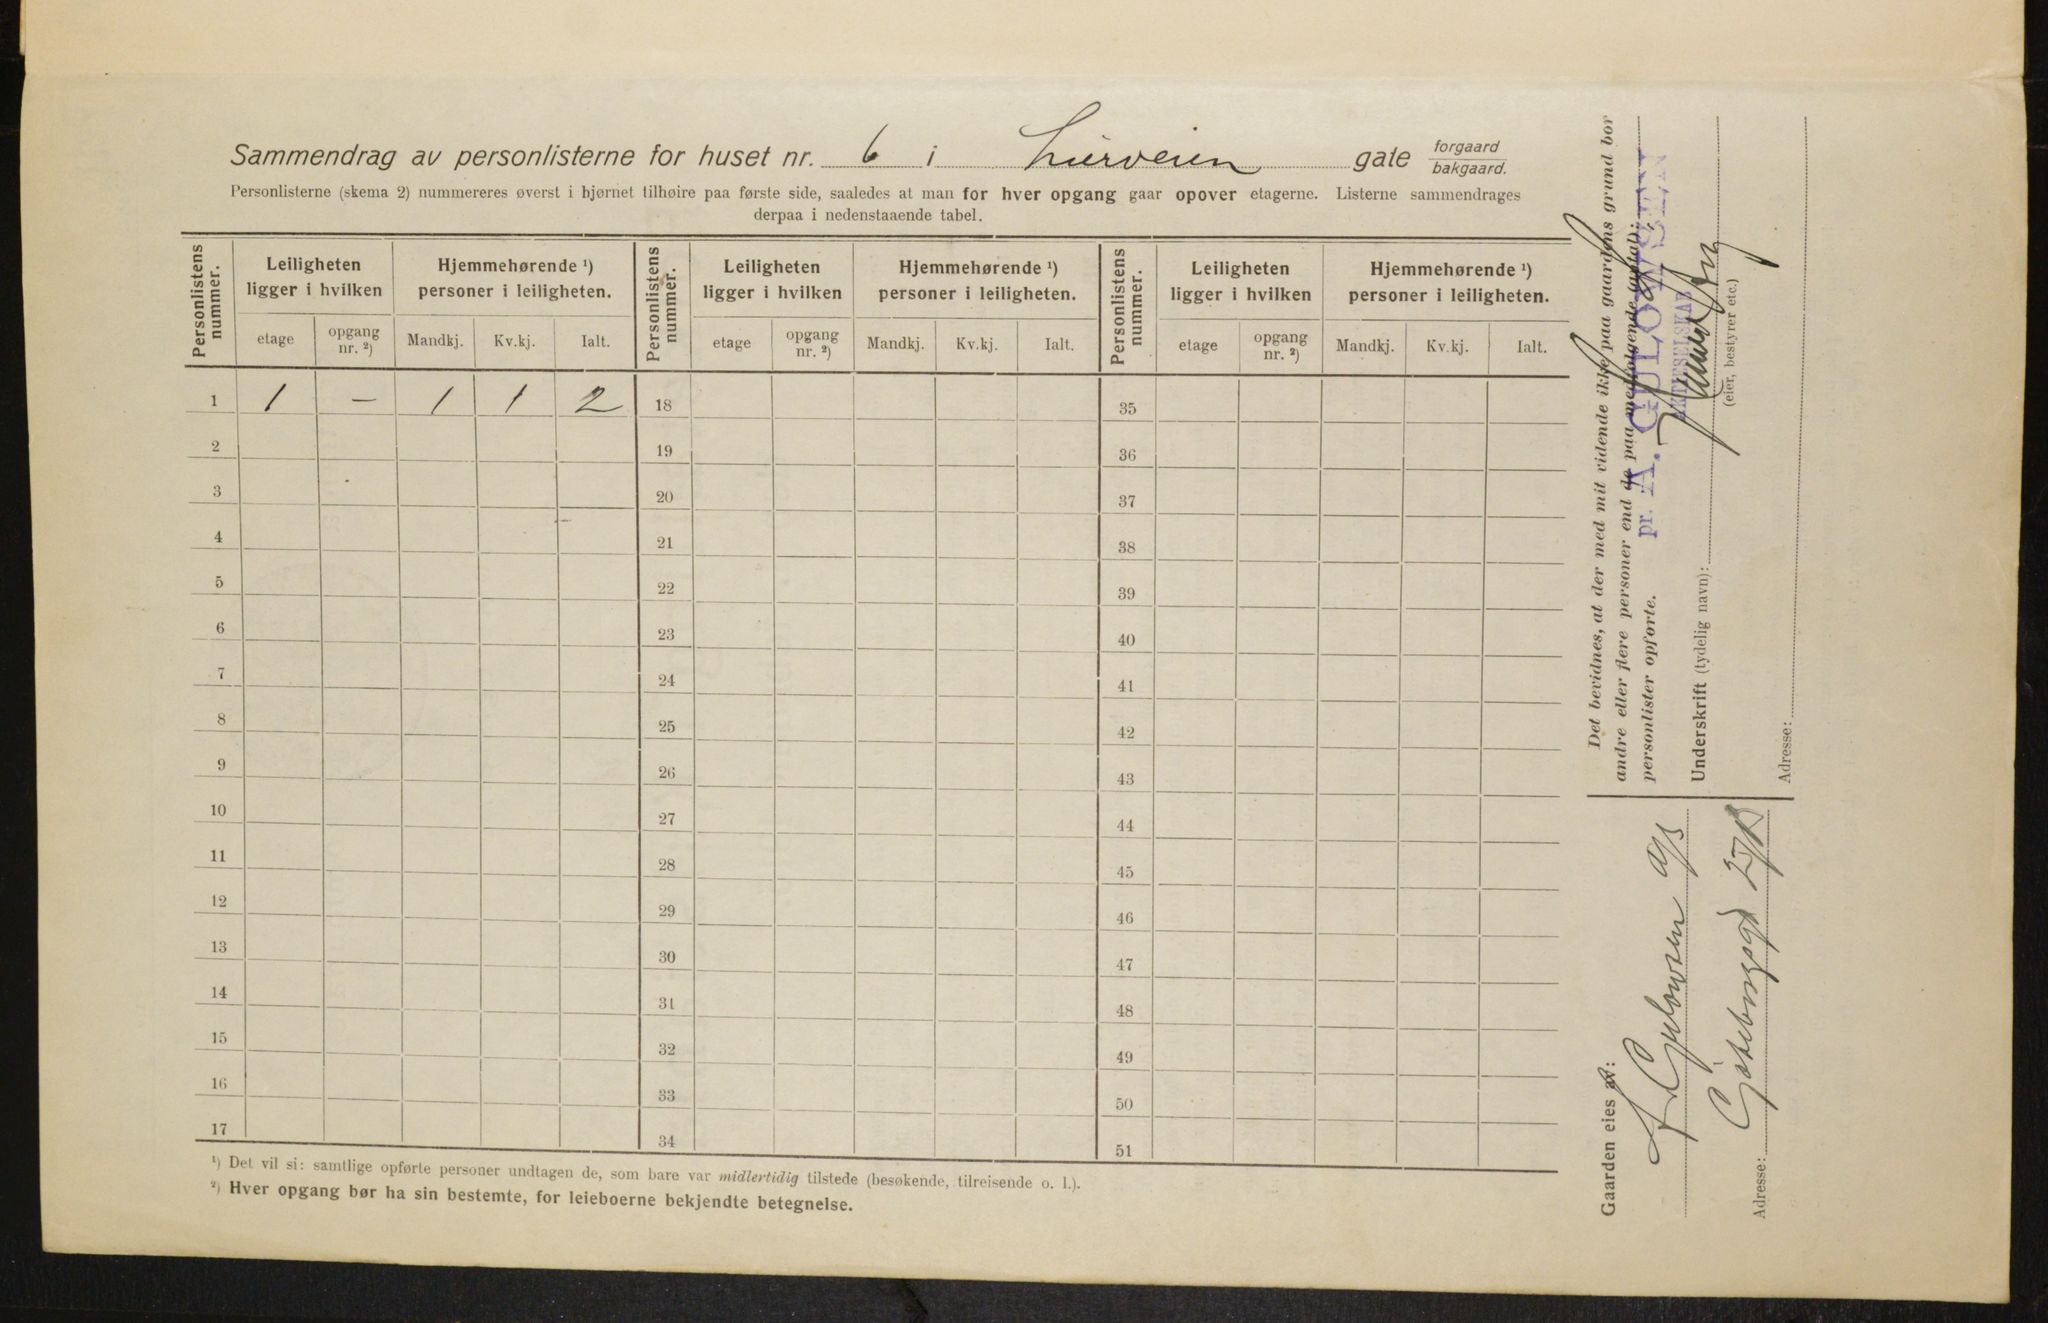 Sammendrag av personlisterne for huset nr. 6 i Lierveien gate forgaard
bakgaard.
Personlisterne (skema 2) nummereres øverst i hjørnet tilhøire paa første side, saaledes at man for hver opgang gaar opover etagerne. Listerne sammendrages
derpaa i nedenstaaende tabel.
Personlistens nummer. Leiligheten ligger i hvilken Hjemmehørende ¹) personer i leiligheten. Personlistens nummer. Leiligheten ligger i hvilken Hjemmehørende ¹) personer i leiligheten. Personlistens nummer. Leiligheten ligger i hvilken Hjemmehørende ¹) personer i leiligheten.
etage opgang nr. ²) Mandkj. Kv.kj. Ialt. etage opgang nr. ²) Mandkj. Kv.kj. Ialt. etage opgang nr. ²) Mandkj. Kv.kj. Ialt.
1 1 – 1 1 2 18 35
2 19 36
3 20 37
4 21 38
5 22 39
6 23 40
7 24 41
8 25 42
9 26 43
10 27 44
11 28 45
12 29 46
13 30 47
14 31 48
15 32 49
16 33 50
17 34 51
¹) Det vil si: samtlige opførte personer undtagen de, som bare var midlertidig tilstede (besøkende, tilreisende o. l.).
²) Hver opgang bør ha sin bestemte, for leieboerne bekjendte betegnelse.
Det bevidnes, at der med mit vidende ikke paa gaardens grund bor
andre eller flere personer end de paa medfølgende (antal):
personlister opførte.
pr. A. GULOWSEN
AKTIESELSKAB
Underskrift (tydelig navn):
(eier, bestyrer etc.)
Adresse:
Gaarden eies av:
A Gulowsen A/S
Adresse: Göteborggt 27 B